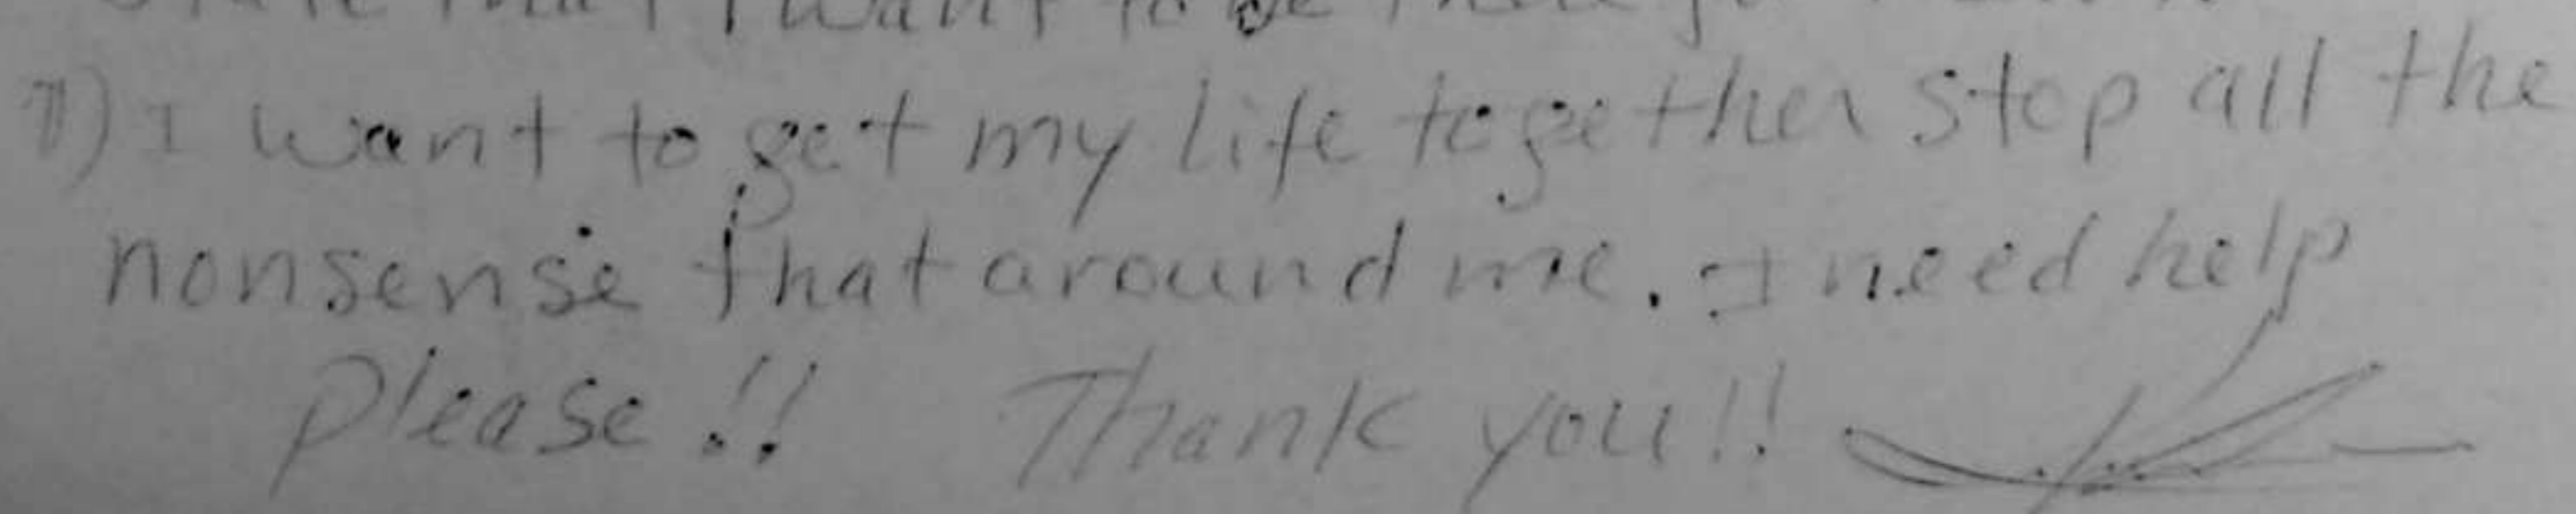 that I want to be there
7) I want to get my life together stop all the
nonsense that around me. I need help
please!! Thank you!!